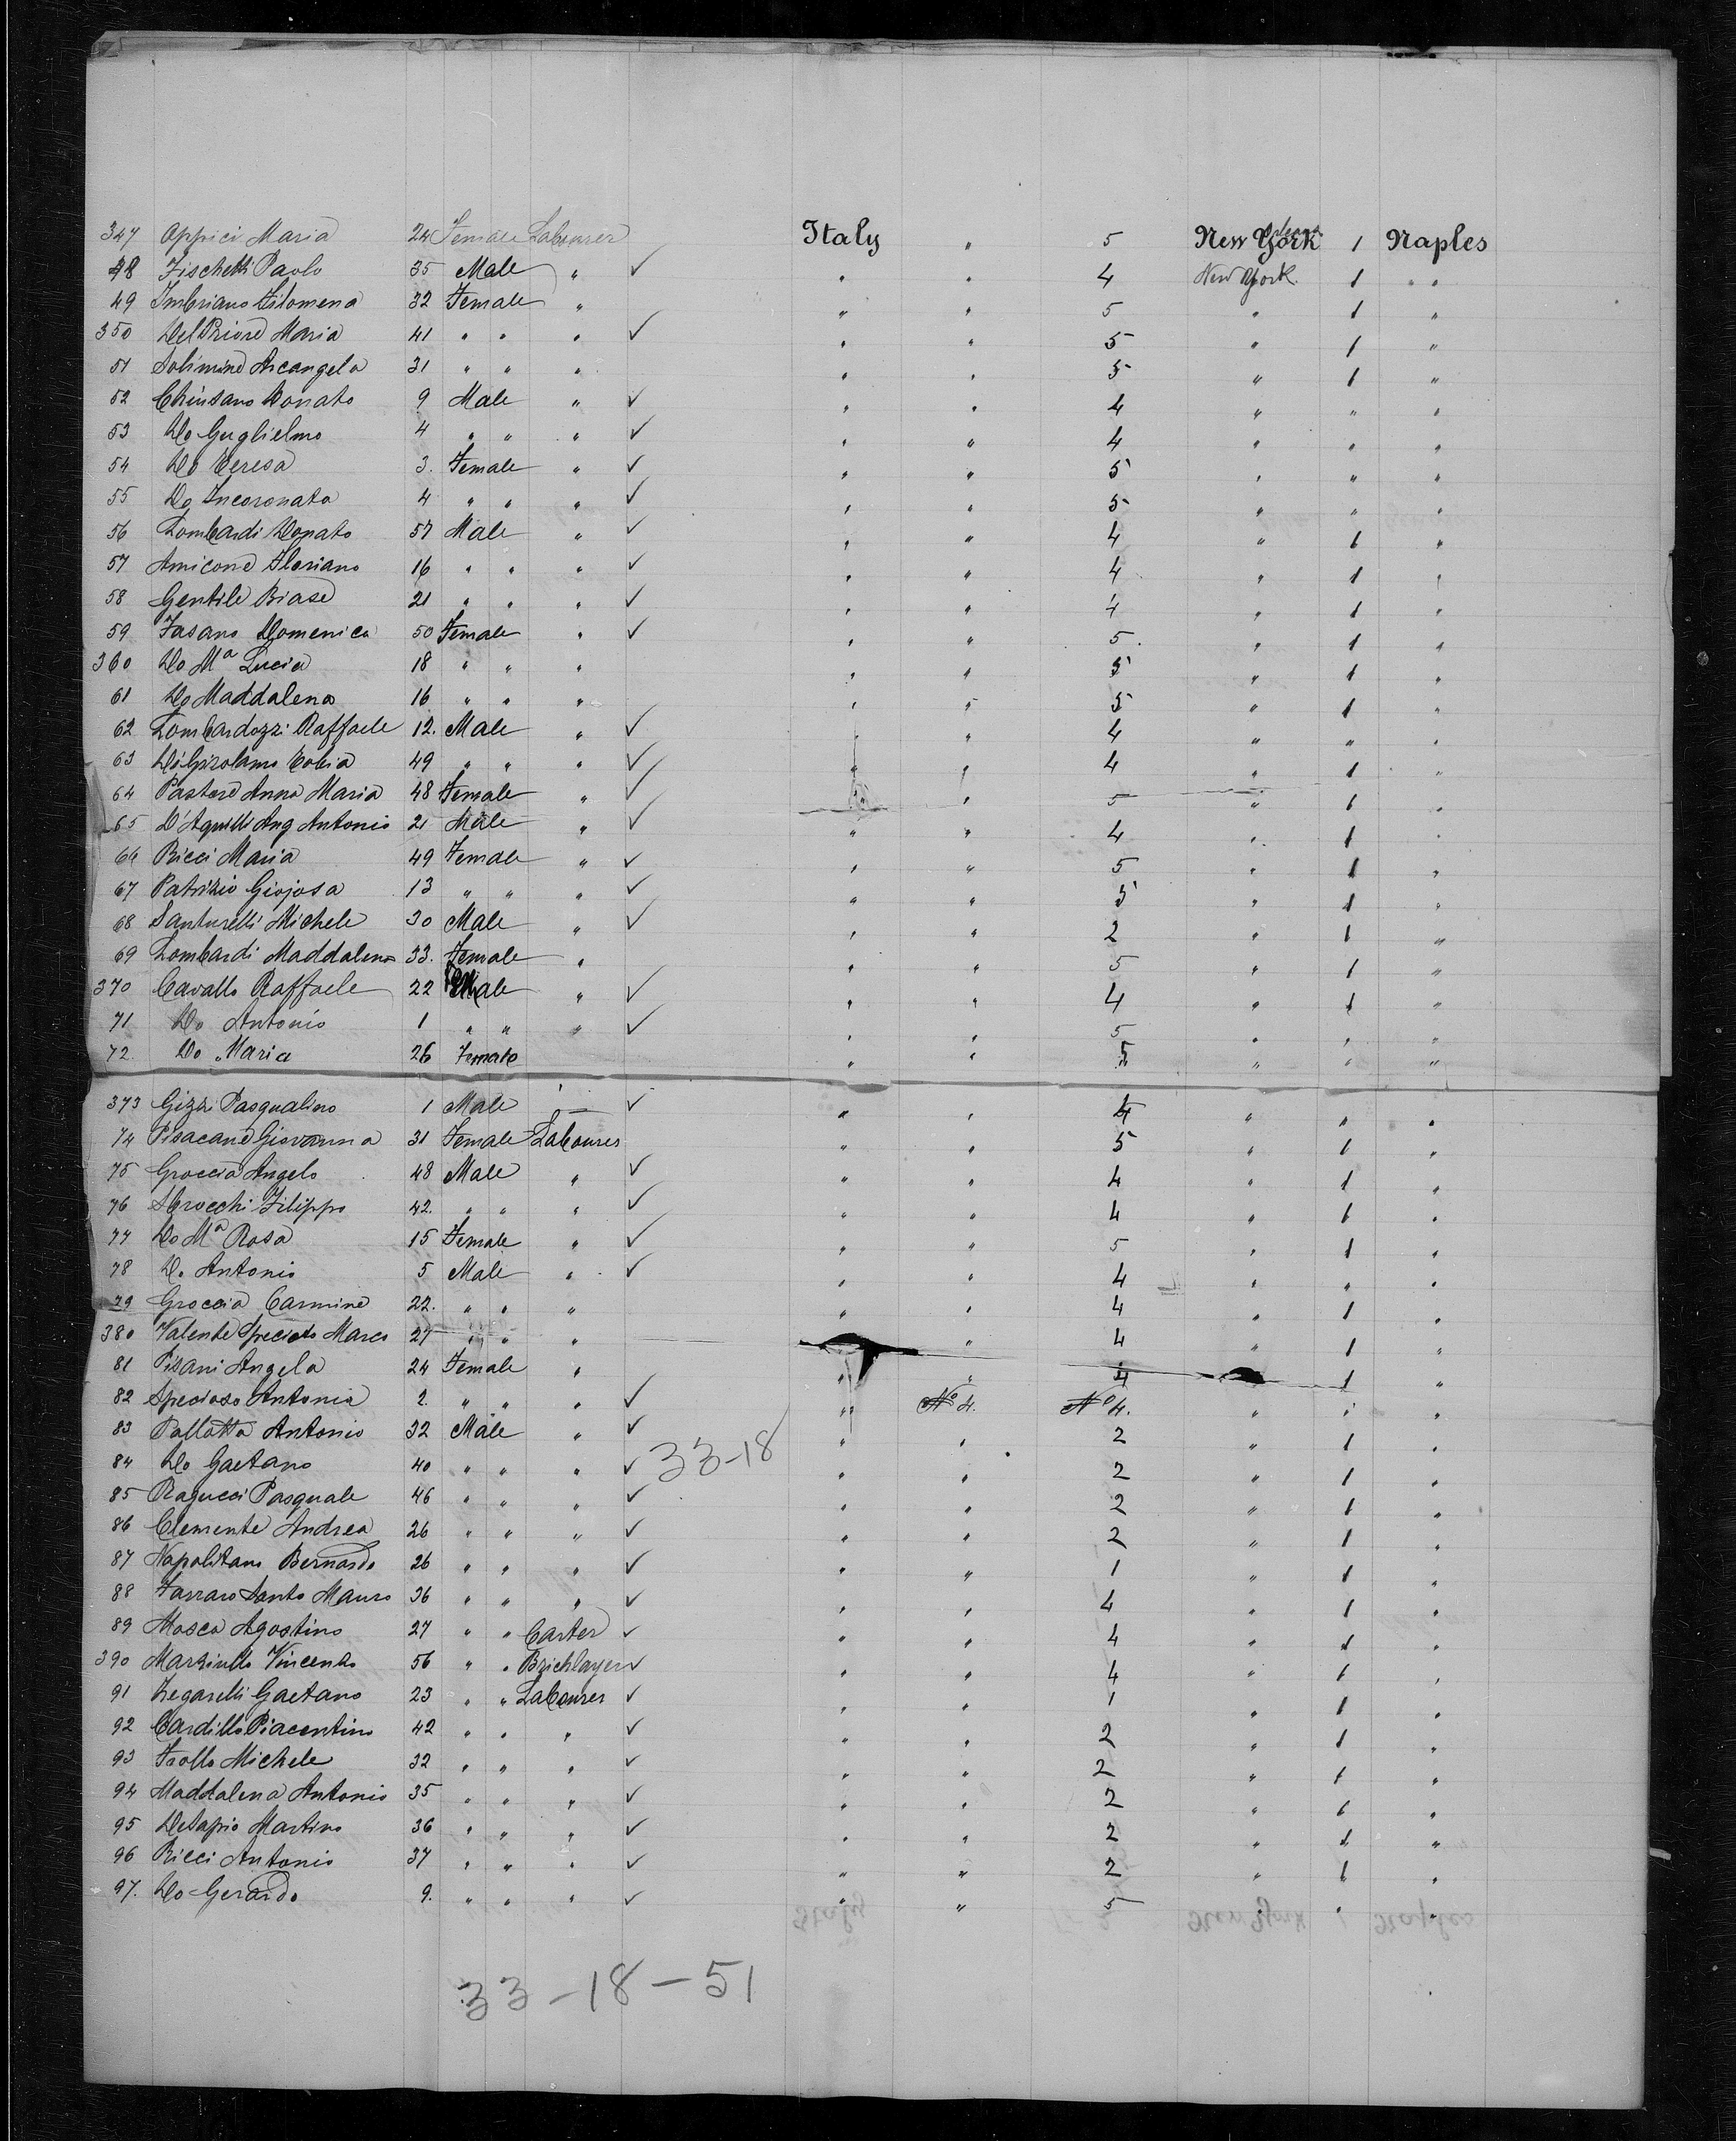 347 Oppici Maria 24 Female Labourer Italy " 5 New York 1 Naples
48 Fischetti Paolo 35 Male " ✓ " " 4 New York 1 " "
49 Imbriano Filomena 32 Female " " " 5 " 1 "
350 Del Priore Maria 41 " " " ✓ " " 5 " 1 "
51 Solimine Arcangela 31 " " " " " 5 " 1 "
52 Chiusano Donato 9 Male " ✓ " " 4 " " "
53 Do Guglielmo 4 " " " ✓ " " 4 " " "
54 Do Teresa 3. Female " ✓ " " 5 " " "
55 Do Incoronata 4 " " " ✓ " " 5 " " "
56 Lombardi Donato 57 Male " ✓ " " 4 " 1 "
57 Amicone Floriano 16 " " " ✓ " " 4 " 1 "
58 Gentile Biase 21 " " " ✓ " " 4 " 1 "
59 Fasano Domenica 50 Female " ✓ " " 5 " 1 "
360 Do Ma Lucia 18 " " " " " 5 " 1 "
61 Do Maddalena 16 " " " " " 5 " 1 "
62 Lombardozzi Raffaele 12. Male " ✓ " " 4 " " "
63 Di Girolamo Tobia 49 " " " ✓ " " 4 " 1 "
64 Pastore Anna Maria 48 Female " ✓ " 5 " 1 "
65 D'Aquilli Ang Antonio 21 Male " ✓ " " 4 " 1 "
66 Ricci Maria 49 Female " ✓ " " 5 " 1 "
67 Patrizio Giojosa 13 " " " ✓ " " 5 " 1 "
68 Santurelli Michele 30 Male " ✓ " " 2 " 1 "
69 Lombardi Maddalena 33. Female " " " 5 " 1 "
370 Cavallo Raffaele 22 Male " ✓ " " 4 " 1 "
71 Do Antonio 1 " " " ✓ " " 5 " " "
72. Do Maria 26 Female " " 5 " " "
373 Gizzi Pasqualino 1 Male — ✓ " " 4 " " "
74 Pisacane Giovanna 31 Female Labourer " " 5 " 1 "
75 Groccia Angelo 48 Male " ✓ " " 4 " 1 "
76 Sbrocchi Filippo 42. " " " ✓ " " 4 " 1 "
77 Do Ma Rosa 15 Female " ✓ " " 5 " 1 "
78 Do Antonio 5 Male " ✓ " " 4 " " "
79 Groccia Carmine 22. " " " " " 4 " 1 "
380 Valente Marco 27 " " " " 4 " 1 "
81 Pisani Angela 24 Female " " " 4 1 "
82 Specioso Antonia 2. " " " ✓ " No 4. No 4. " " "
83 Pallotta Antonio 32 Male " ✓ " " 2 " 1 "
84 Do Gaetano 40 " " " ✓ 33-18 " " 2 " 1 "
85 Ragucci Pasquale 46 " " " ✓ " " 2 " 1 "
86 Clemente Andrea 26 " " " ✓ " " 2 " 1 "
87 Napolitano Bernardo 26 " " " ✓ " " 1 " 1 "
88 Farraro Santo Mauro 36 " " " ✓ " " 4 " 1 "
89 Mosca Agostino 27 " " Carter ✓ " " 4 " 1 "
390 Marziullo Vincenzo 56 " " Bricklayer ✓ " " 4 " 1 "
91 Zegarelli Gaetano 23 " " Labourer ✓ " " 1 " 1 "
92 Cardillo Piacentino 42 " " " ✓ " " 2 " 1 "
93 Frollo Michele 32 " " " ✓ " " 2 " 1 "
94 Maddalena Antonio 35 " " " ✓ " " 2 " 1 "
95 DeSapio Martino 36 " " " ✓ " " 2 " 1 "
96 Ricci Antonio 37 " " " ✓ " " 2 " 1 "
97. Do Gerardo 9. " " " ✓ " " 5 " " "
33-18-51